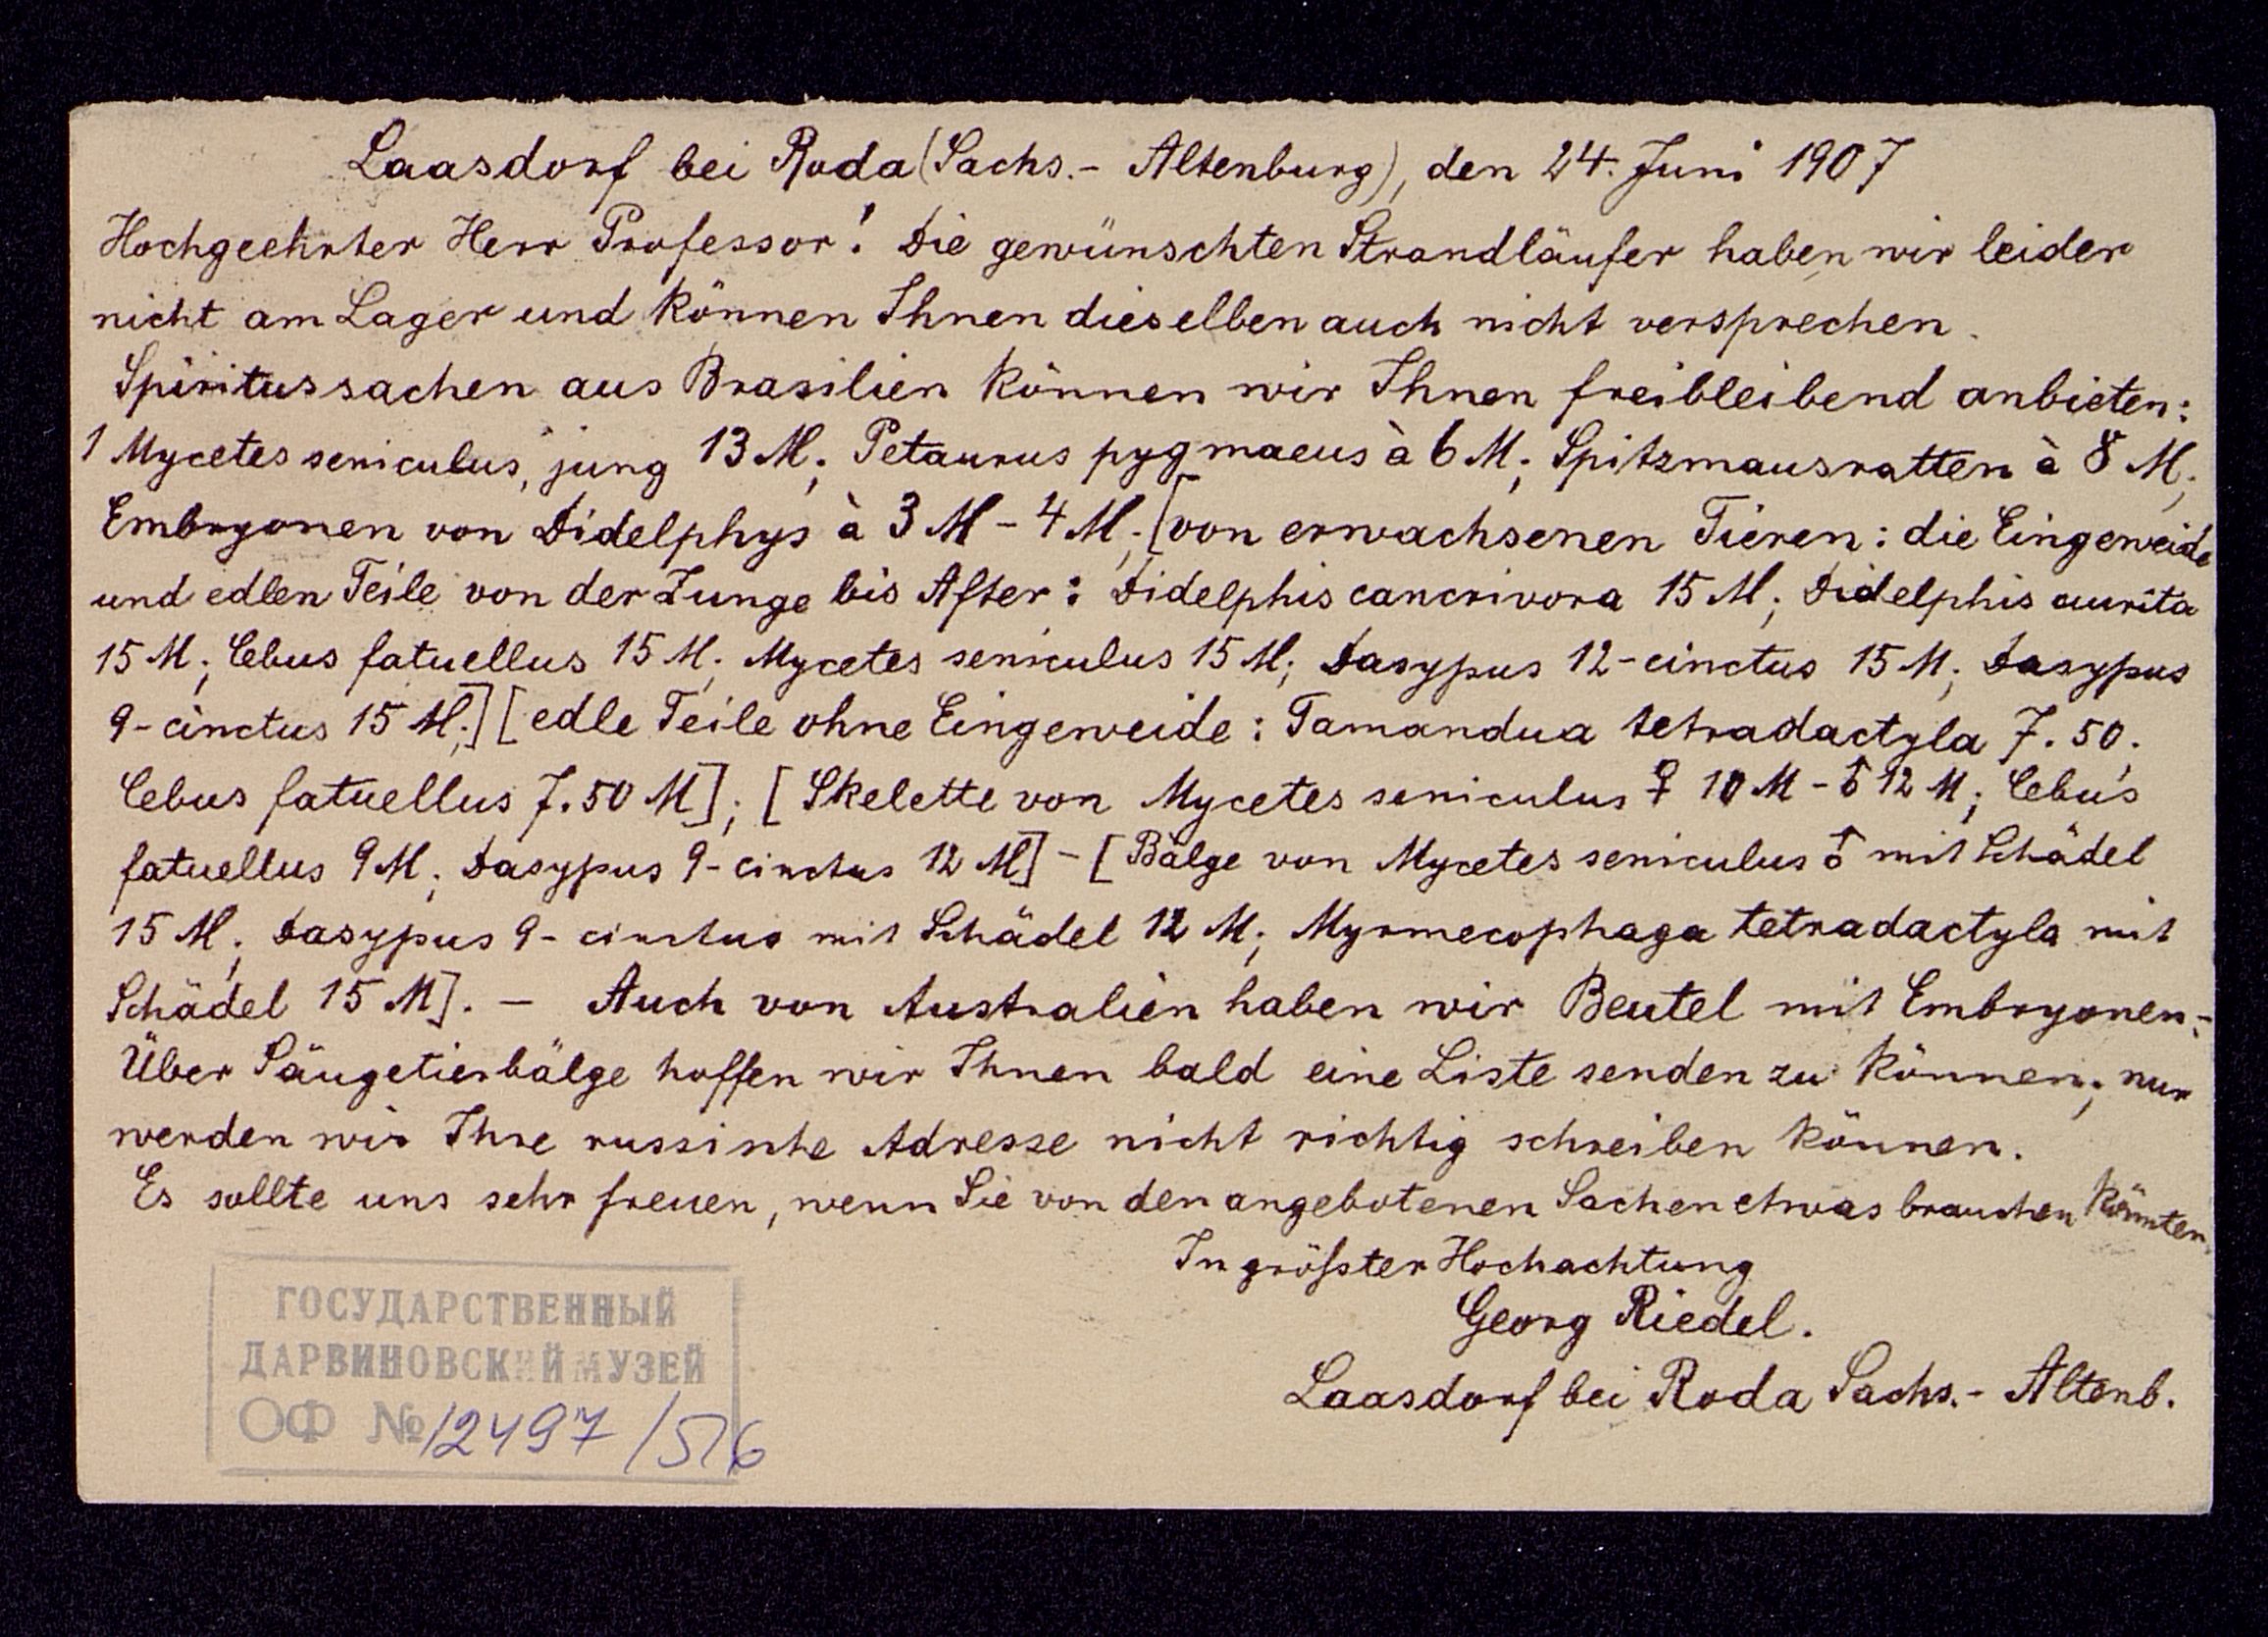 Laasdorf bei Roda (Sachs.- Altenburg), den 24. Juni 1907
Hochgeehrter Herr Professor! Die gewünschten Strandläufer haben wir leider
nicht am Lager und können Ihnen dieselben auch nicht versprechen.
Spiritussachen aus Brasilien können wir Ihnen freibleibend anbieten:
1 Mycetes seniculus, jung 13 M; Petaurus pygmaeus à 6 M; Spitzmausratten à 8 M;
Embryonen von Didelphys à 3 M - 4 M; [von erwachsenen Tieren: die Eingeweide
und edlen Teile von der Zunge bis After: Didelphis cancrivora 15 M; Didelphis aurita
15 M; Cebus fatuellus 15 M; Mycetes seniculus 15 M; Dasypus 12-cinctus 15 M; Dasypus
9-cinctus 15 M;] [edle Teile ohne Eingeweide: Tamandua tetradactyla 7.50;
Cebus fatuellus 7.50 M]; [Skelette von Mycetes seniculus ♀ 10 M - ♂ 12 M; Cebus
fatuellus 9 M; Dasypus 9-cinctus 12 M] - [Bälge von Mycetes seniculus ♂ mit Schädel
15 M; Dasypus 9-cinctus mit Schädel 12 M; Myrmecophaga tetradactyla mit
Schädel 15 M]. - Auch von Australien haben wir Beutel mit Embryonen.-
Über Säugetierbälge hoffen wir Ihnen bald eine Liste senden zu können; nur
werden wir Ihre russische Adresse nicht richtig schreiben können.
Es sollte uns sehr freuen, wenn Sie von den angebotenen Sachen etwas brauchen könnten.
In größter Hochachtung
Georg Riedel.
Laasdorf bei Roda Sachs.- Altenb.
ГОСУДАРСТВЕННЫЙ
ДАРВИНОВСКИЙ МУЗЕЙ
ОФ № 12497/516